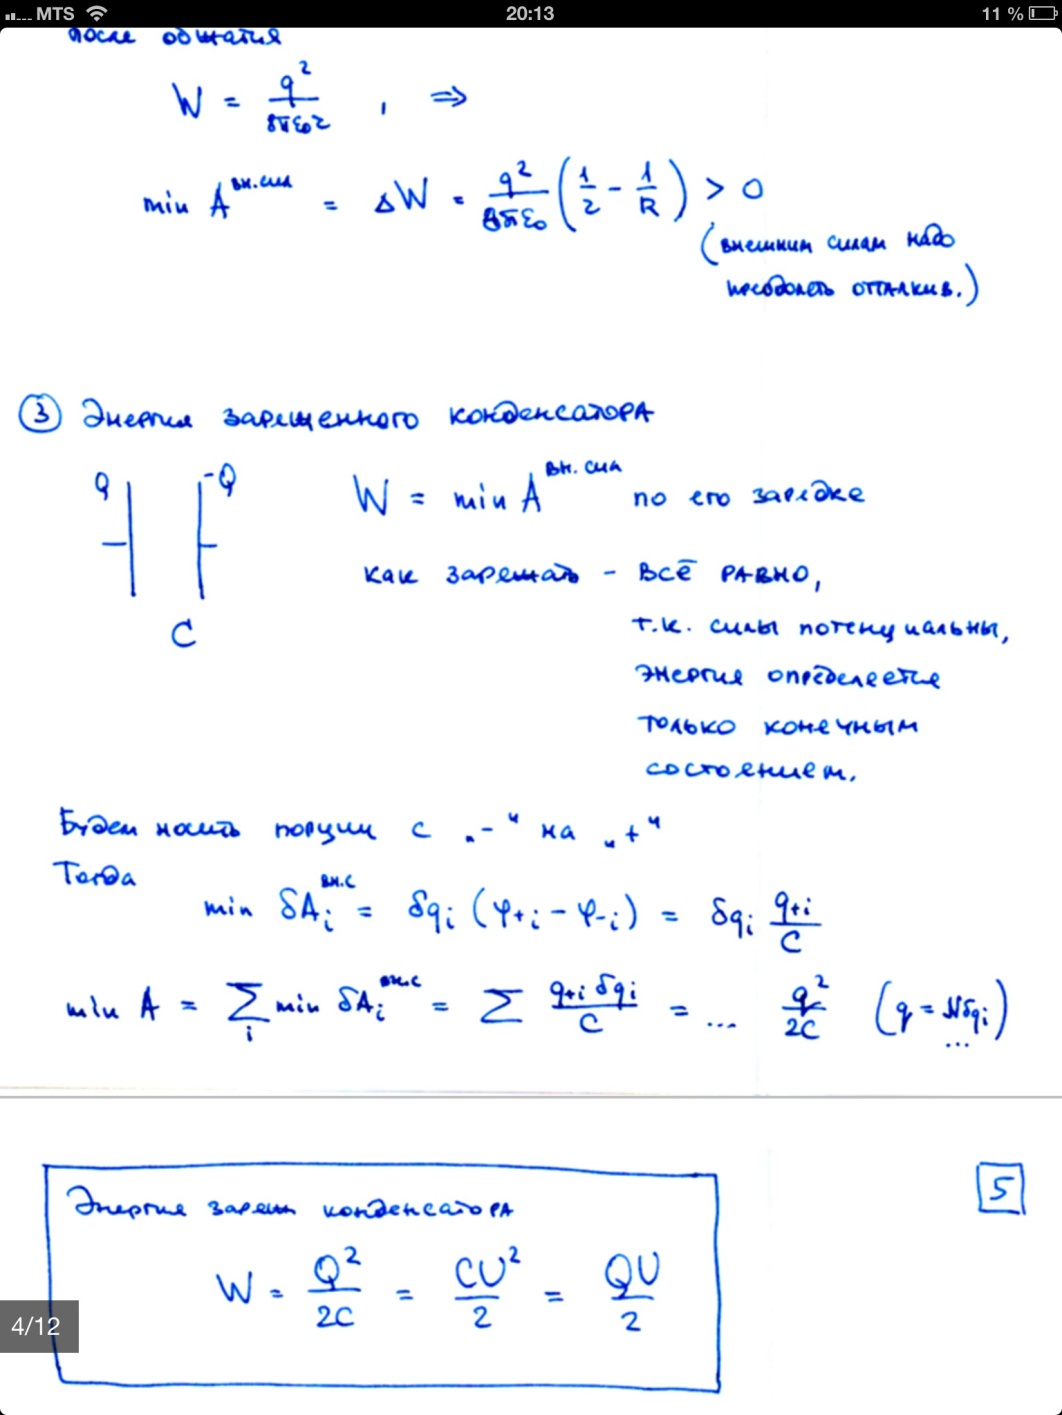 MTS 20:13 11 %
после обжатия
W = q² / 8πε₀r , ⇒
min A^вн.сил = ΔW = q² / 8πε₀ (1/r - 1/R) > 0
(внешним силам надо
преодолеть отталкив.)
3 Энергия заряженного конденсатора
Q -Q
W = min A^вн.сил по его зарядке
C
как заряжать - всё равно,
т.к. силы потенциальны,
энергия определяется
только конечным
состоянием.
Будем носить порции с „-“ на „+“
Тогда
min δAᵢ^вн.с = δqᵢ (φ₊ᵢ - φ₋ᵢ) = δqᵢ q₊ᵢ / C
min A = Σᵢ min δAᵢ^вн.с = Σ q₊ᵢ δqᵢ / C = ... q² / 2C (q = Nδqᵢ)
...
5
Энергия заряж конденсатора
W = Q² / 2C = CU² / 2 = QU / 2
4/12